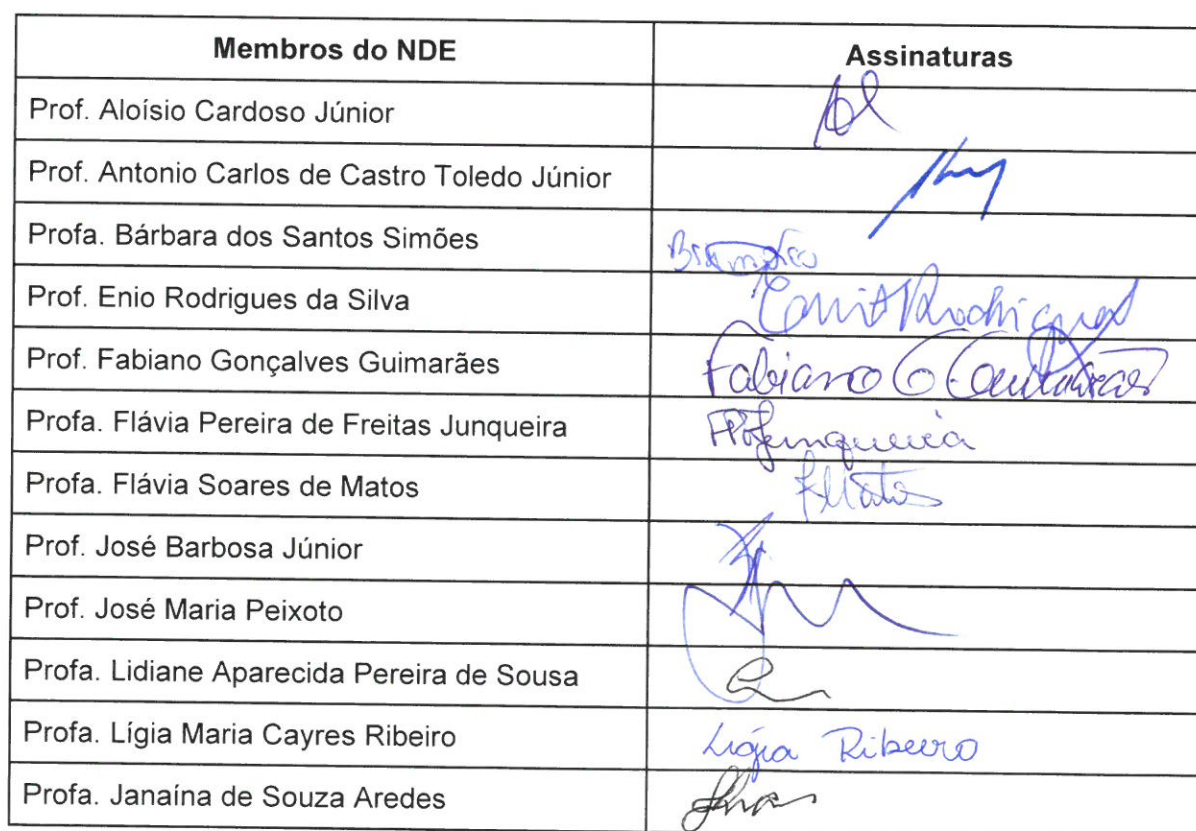 Membros do NDE Assinaturas
Prof. Aloísio Cardoso Júnior
Prof. Antonio Carlos de Castro Toledo Júnior
Profa. Bárbara dos Santos Simões
Prof. Enio Rodrigues da Silva
Prof. Fabiano Gonçalves Guimarães Fabiano G Guimarães
Profa. Flávia Pereira de Freitas Junqueira
Profa. Flávia Soares de Matos
Prof. José Barbosa Júnior
Prof. José Maria Peixoto
Profa. Lidiane Aparecida Pereira de Sousa
Profa. Lígia Maria Cayres Ribeiro Lígia Ribeiro
Profa. Janaína de Souza Aredes